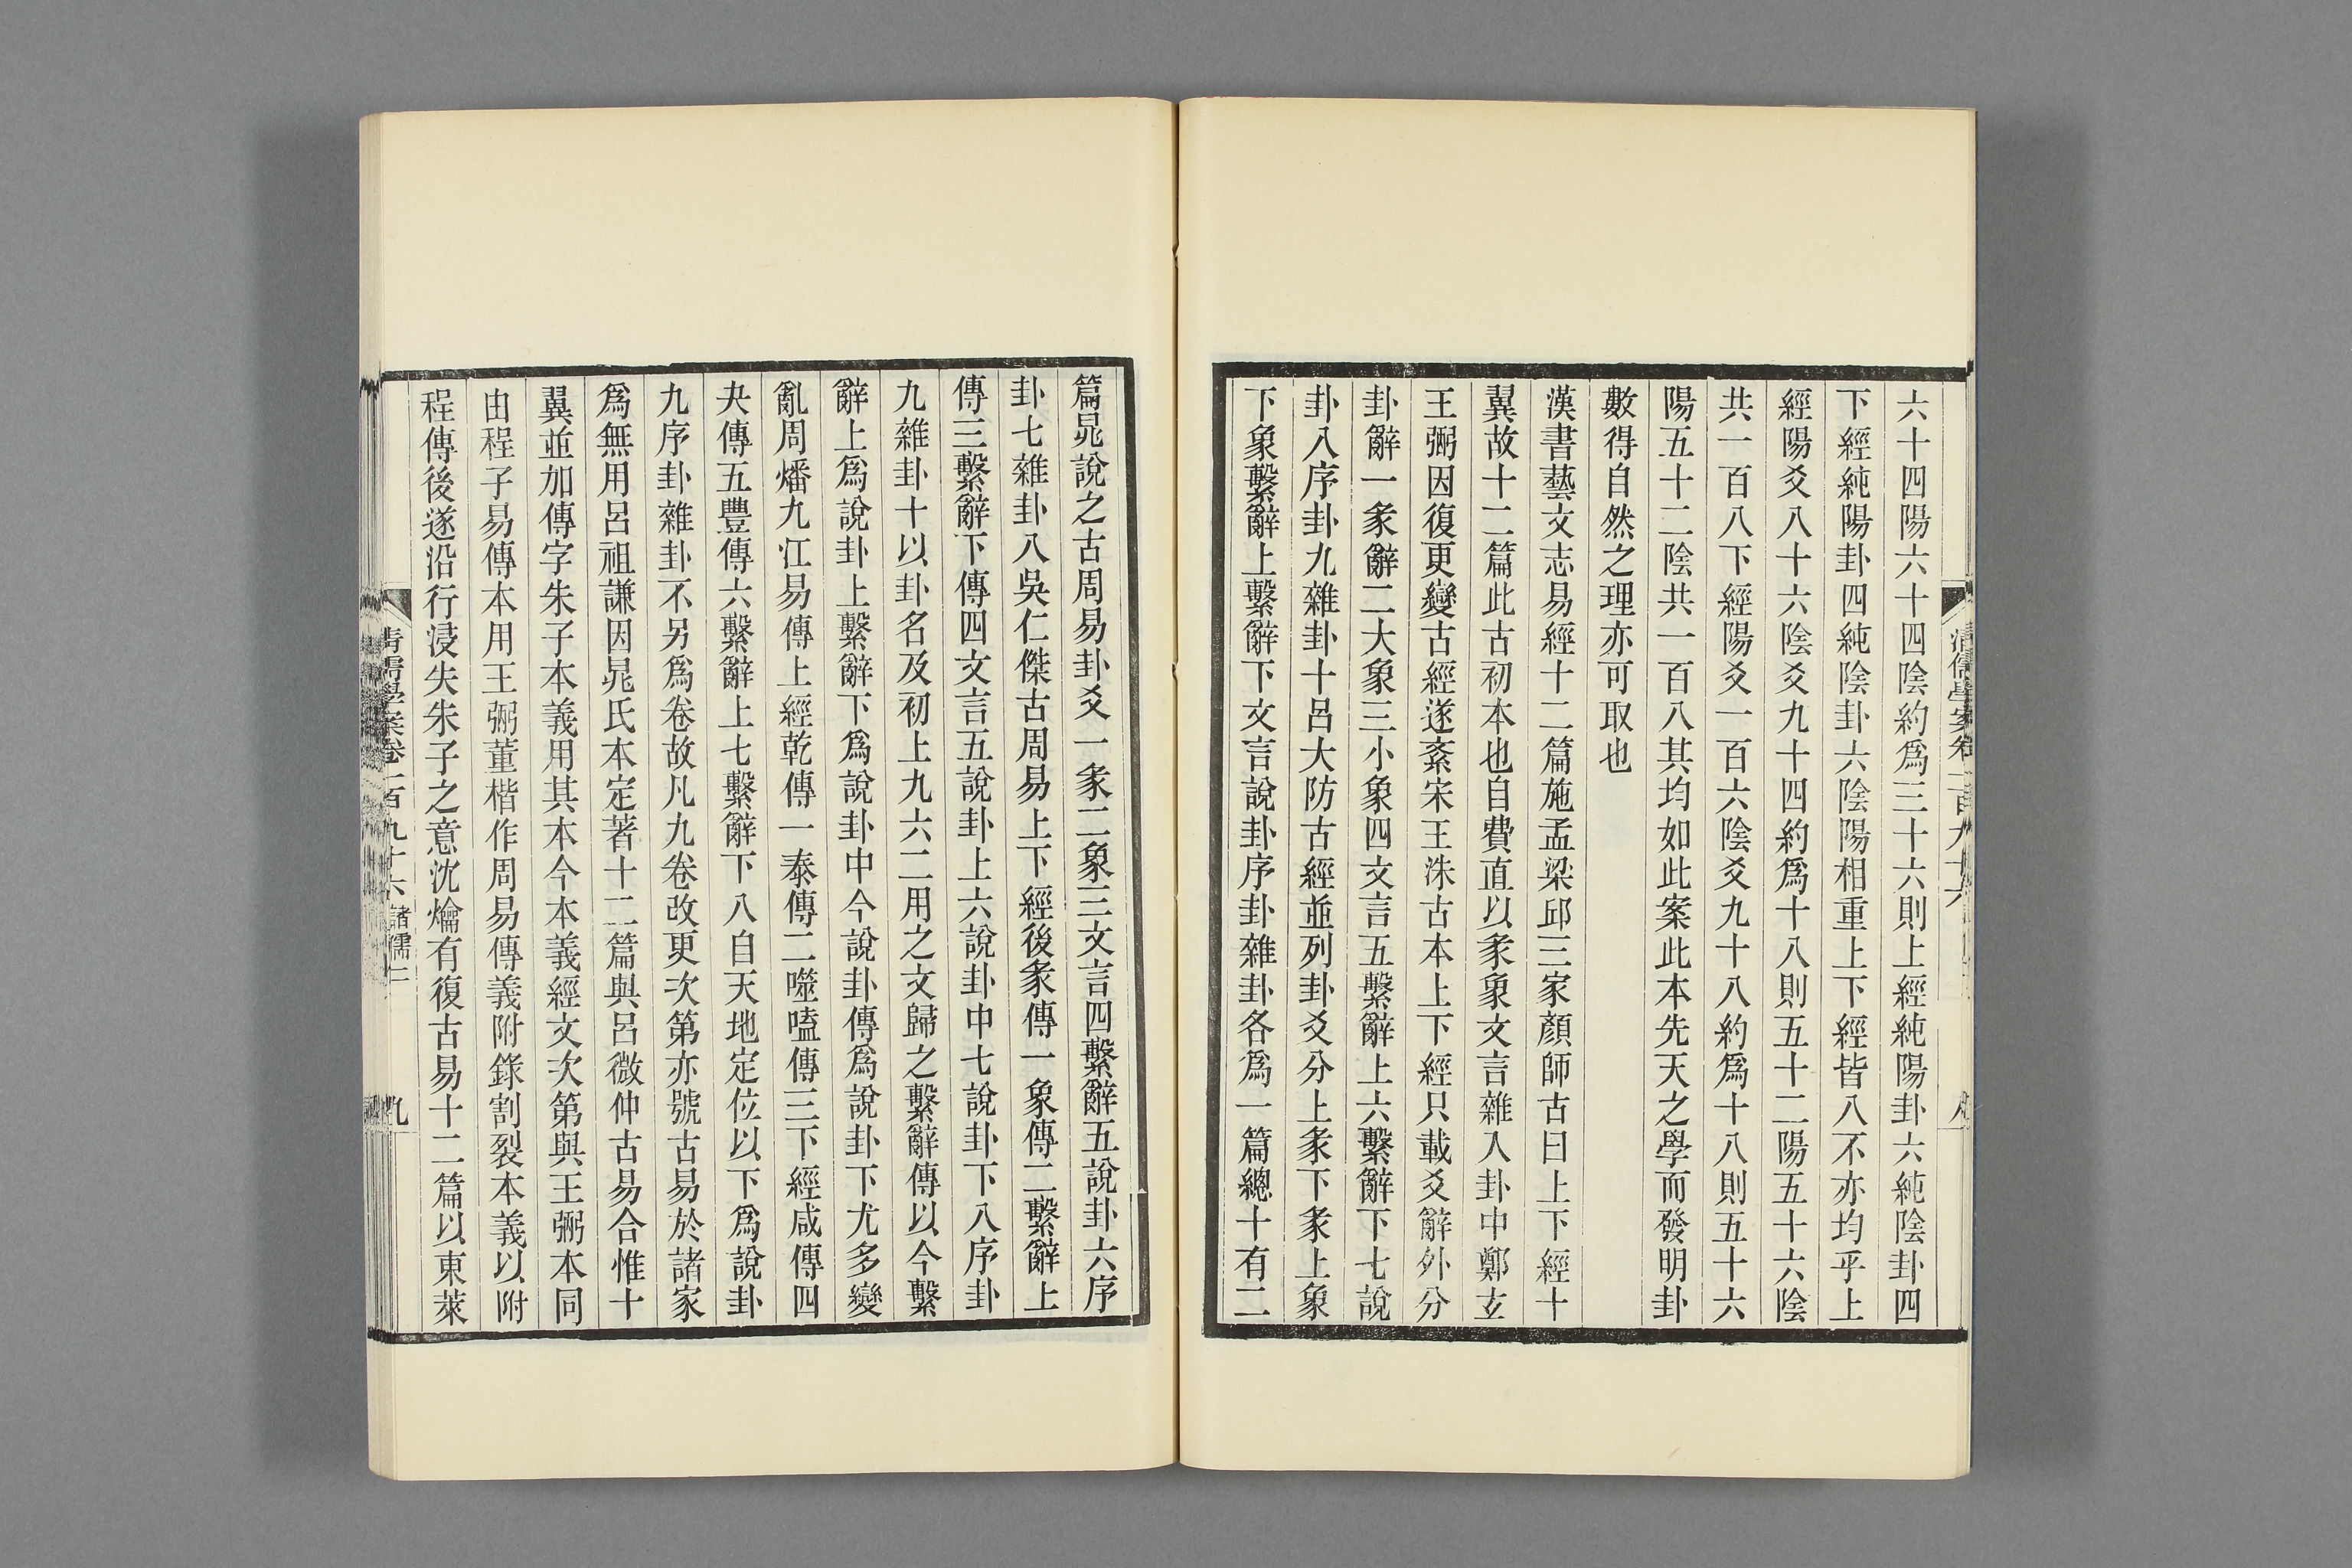 六十四陽六十四陰約爲三十六則上經純陽卦六純陰卦四
下經純陽卦四純陰卦六陰陽相重上下經皆八不亦均乎上
經陽爻八十六陰爻九十四約爲十八則五十二陽五十六陰
共一百八下經陽爻一百六陰爻九十八約爲十八則五十六
陽五十二陰共一百八其均如此案此本先天之學而發明卦
數得自然之理亦可取也
漢書藝文志易經十二篇施孟梁邱三家顏師古曰上下經十
翼故十二篇此古初本也自費直以彖象文言雜入卦中鄭玄
王弼因復更變古經遂紊宋王洙古本上下經只載爻辭外分
卦辭一彖辭二大象三小象四文言五繫辭上六繫辭下七說
卦八序卦九雜卦十呂大防古經並列卦爻分上彖下彖上象
下象繫辭上繫辭下文言說卦序卦雜卦各爲一篇總十有二
清儒學案卷一百九十六
八
篇晁說之古周易卦爻一彖二象三文言四繫辭五說卦六序
卦七雜卦八吳仁傑古周易上下經後彖傳一象傳二繫辭上
傳三繫辭下傳四文言五說卦上六說卦中七說卦下八序卦
九雜卦十以卦名及初上九六二用之文歸之繫辭傳以今繫
辭上爲說卦上繫辭下爲說卦中今說卦傳爲說卦下尤多變
亂周燔九江易傳上經乾傳一泰傳二噬嗑傳三下經咸傳四
夬傳五豐傳六繫辭上七繫辭下八自天地定位以下爲說卦
九序卦雜卦不另爲卷故凡九卷改更次第亦號古易於諸家
爲無用呂祖謙因晁氏本定著十二篇與呂微仲古易合惟十
翼並加傳字朱子本義用其本今本義經文次第與王弼本同
由程子易傳本用王弼董楷作周易傳義附錄割裂本義以附
程傳後遂沿行浸失朱子之意沈㷍有復古易十二篇以東萊
清儒學案卷一百九十六 諸儒二
九